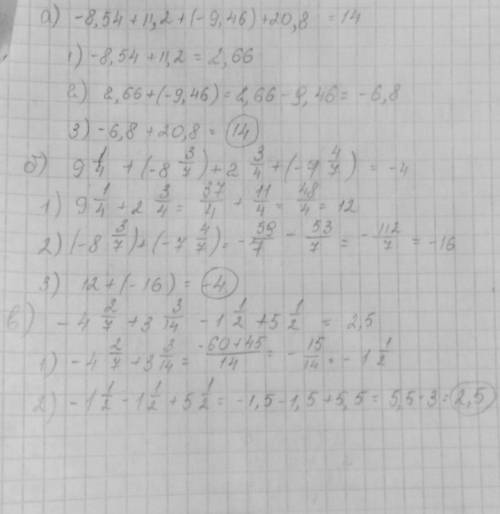 а) -8,54 + 11,2 + (-9,46) + 20,8 = 14
1) -8,54 + 11,2 = 2,66
2) 2,66 + (-9,46) = 2,66 - 9,46 = -6,8
3) -6,8 + 20,8 = 14
б) 9 1/4 + (-8 3/7) + 2 3/4 + (-7 4/7) = -4
1) 9 1/4 + 2 3/4 = 37/4 + 11/4 = 48/4 = 12
2) (-8 3/7) + (-7 4/7) = -59/7 - 53/7 = -112/7 = -16
3) 12 + (-16) = -4
в) -4 2/7 + 3 3/14 - 1 1/2 + 5 1/2 = 2,5
1) -4 2/7 + 3 3/14 = -60+45/14 = -15/14 = -1 1/2
2) -1 1/2 - 1 1/2 + 5 1/2 = -1,5 - 1,5 + 5,5 = 5,5 - 3 = 2,5